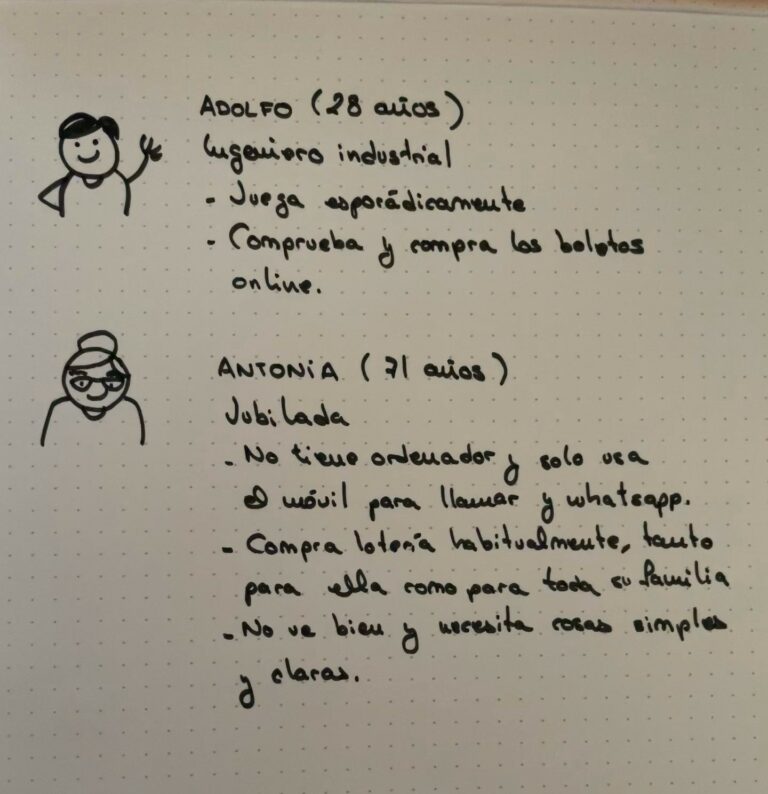 ADOLFO (28 años)
Ingeniero industrial
- Juega esporádicamente
- Comprueba y compra los boletos
online.
ANTONIA (71 años)
Jubilada
- No tiene ordenador y solo usa
el móvil para llamar y whatsapp.
- Compra lotería habitualmente, tanto
para ella como para toda su familia
- No ve bien y necesita cosas simples
y claras.